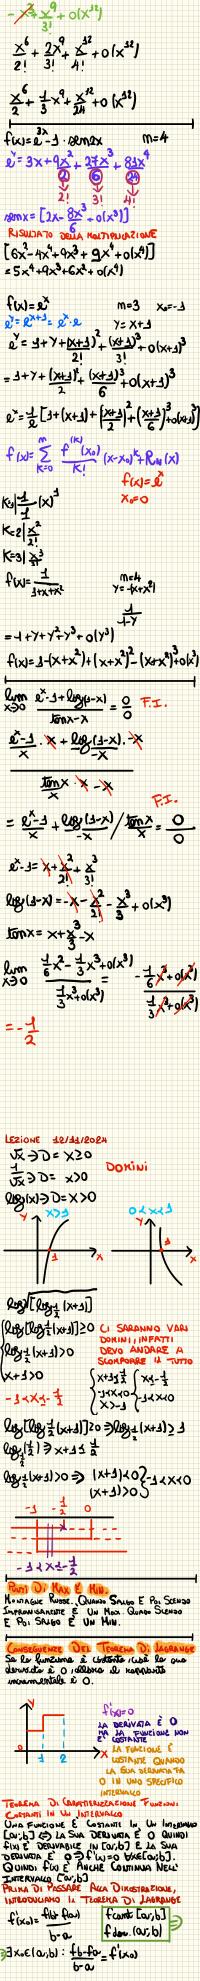 -x³ + x⁹/3! + o(x¹²)
x⁶/2! + 2x⁹/3! + x¹²/4! + o(x¹²)
x⁶/2 + 1/3 x⁹ + x¹²/24 + o(x¹²)
f(x) = e^3x - 1 · sen2x   m=4
e^y = 3x + 9x²/2 + 27x³/6 + 81x⁴/24
2! 3! 4!
senx = [2x - 8x³/6 + o(x³)]
RISULTATO DELLA MOLTIPLICAZIONE
[6x² - 4x⁴ + 9x³ + 9x⁴ + o(x⁴)]
= 5x⁴ + 9x³ + 6x² + o(x⁴)
f(x) = e^x   m=3   x₀=-1
e^y = e^x+1 = e^x · e   y = x+1
e^y = 1 + y + (x+1)²/2! + (x+1)³/3! + o(x+1)³
= 1 + y + (x+1)²/2 + (x+1)³/6 + o(x+1)³
e^x = 1/e [1 + (x+1) + (x+1)²/2 + (x+1)³/6 + o(x+1)³]
f(x) = Σ f^(k)(x₀)/k! (x-x₀)^k + R_m(x)
f(x) = e^x
x₀ = 0
K=1 | 1/1 (x)¹
K=2 | x²/2!
K=3 | x³/3!
f(x) = 1/1+x+x²   m=4
y = -(x+x²)
1/1-y
= 1 + y + y² + y³ + o(y³)
f(x) = 1 - (x+x²) + (x+x²)² - (x+x²)³ + o(x³)
lim x→0 e^x - 1 + log(1-x) / tanx - x = 0/0 F.I.
e^x-1/x · x + log(1-x)/-x · -x
tanx/x · x - x
F.I.
= e^x-1/x + log(1-x)/-x / tanx/x = 0/0
e^x-1 = x + x²/2! + x³/3!
log(1-x) = -x - x²/2! - x³/3 + o(x³)
tanx = x + x³/3 - x
lim x→0 1/6 x³ - 1/3 x³ + o(x³) / 1/3 x³ + o(x³) = -1/6 x³ + o(x³) / 1/3 x³ + o(x³)
= -1/2
LEZIONE 12/11/2024
√x ⇒ D = x≥0
1/√x ⇒ D = x>0
log(x) ⇒ D = x>0
DOMINI
y x>1 0<x<1 y
1 x 1 x
CI SARANNO VARI
DOMINI, INFATTI
DEVO ANDARE A
SCOMPORRE IL TUTTO
x+1>0
-1<x≤-1/2
-1<x<0
-1 -1/2 0
-1<x≤-1/2
PUNTI DI MAX E MIN.
MONTAGNE RUSSE. QUANDO SALGO E POI SCENDO
IMPROVVISAMENTE È UN MAX. QUANDO SCENDO
E POI SALGO È UN MIN.
CONSEGUENZE DEL TEOREMA DI LAGRANGE
Se la funzione è costante
derivata è 0
incrementale è 0.
y
0 1 2 x
f'(x)=0
LA DERIVATA È 0
MA LA FUNZIONE NON
È COSTANTE
LA FUNZIONE È
COSTANTE QUANDO
LA SUA DERIVATA
0 IN UNO SPECIFICO
INTERVALLO
TEOREMA DI CARATTERIZZAZIONE FUNZIONI
COSTANTI IN UN INTERVALLO
UNA FUNZIONE È COSTANTE IN UN INTERVALLO
[a;b] ⇔ LA SUA DERIVATA È 0 QUINDI
f(x) È DERIVABILE IN [a;b] E LA SUA
DERIVATA È 0 ⇒ f'(x)=0 ∀x∈[a;b].
QUINDI f(x) È ANCHE CONTINUA NELL'
INTERVALLO [a;b]
PRIMA DI PASSARE ALLA DIMOSTRAZIONE,
INTRODUCIAMO IL TEOREMA DI LAGRANGE
f'(x₀) = f(b)-f(a)/b-a
f cont. [a;b]
f der. (a;b)
∃x₀∈(a;b): f(b)-f(a)/b-a = f'(x₀)